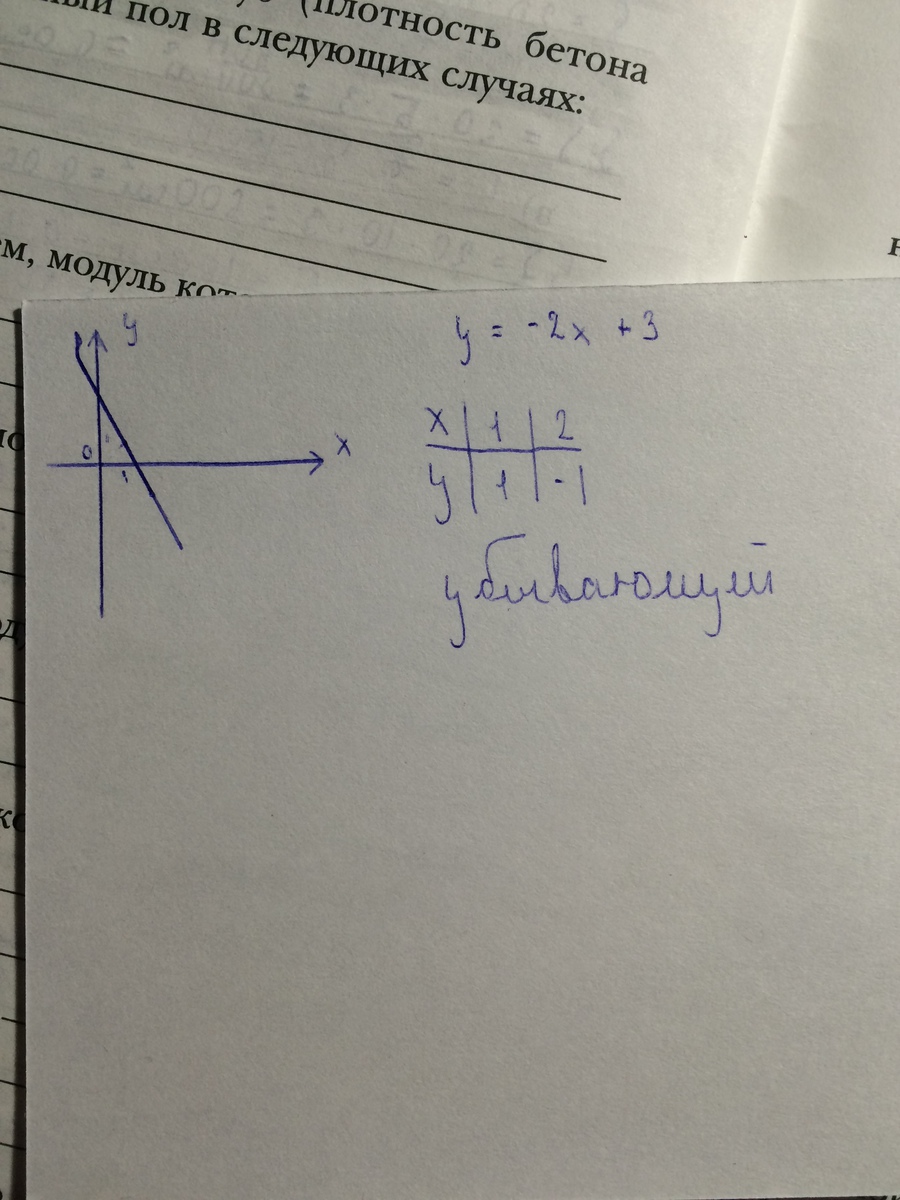 (плотность бетона
пол в следующих случаях:
модуль
y
y = -2x + 3
x 1 2
0
x
y 1 -1
убывающий